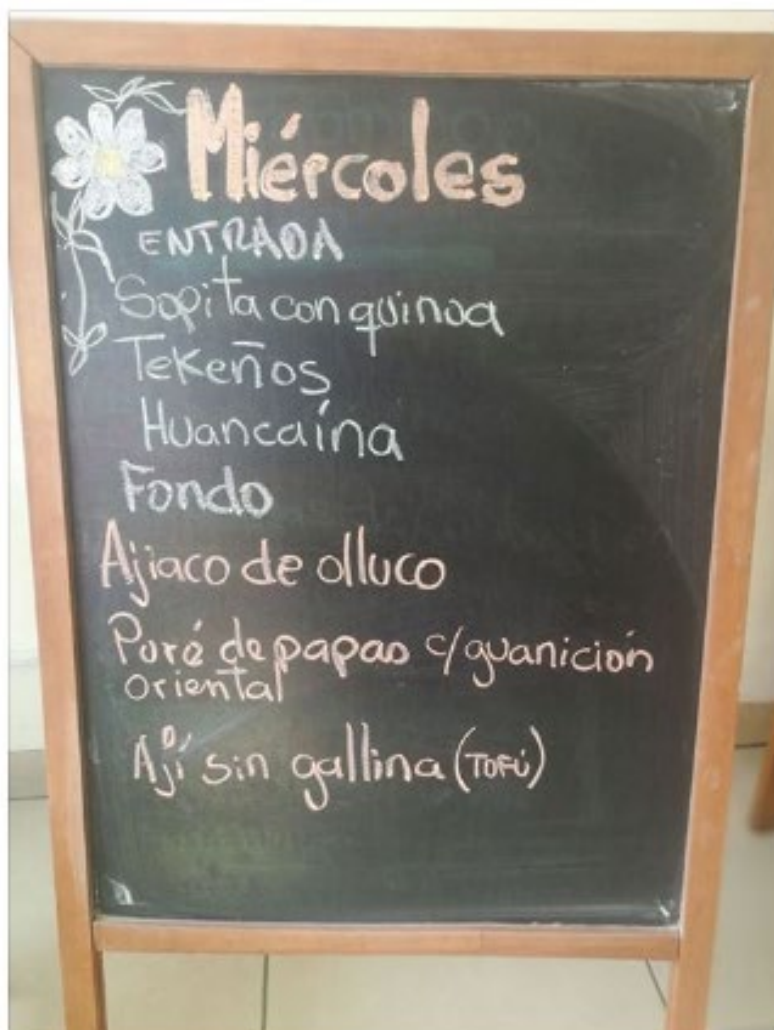 Miércoles
ENTRADA
Sopita con quinoa
Tekeños
Huancaína
Fondo
Ajiaco de olluco
Puré de papas c/guanición
oriental
Ají sin gallina (TOFÚ)